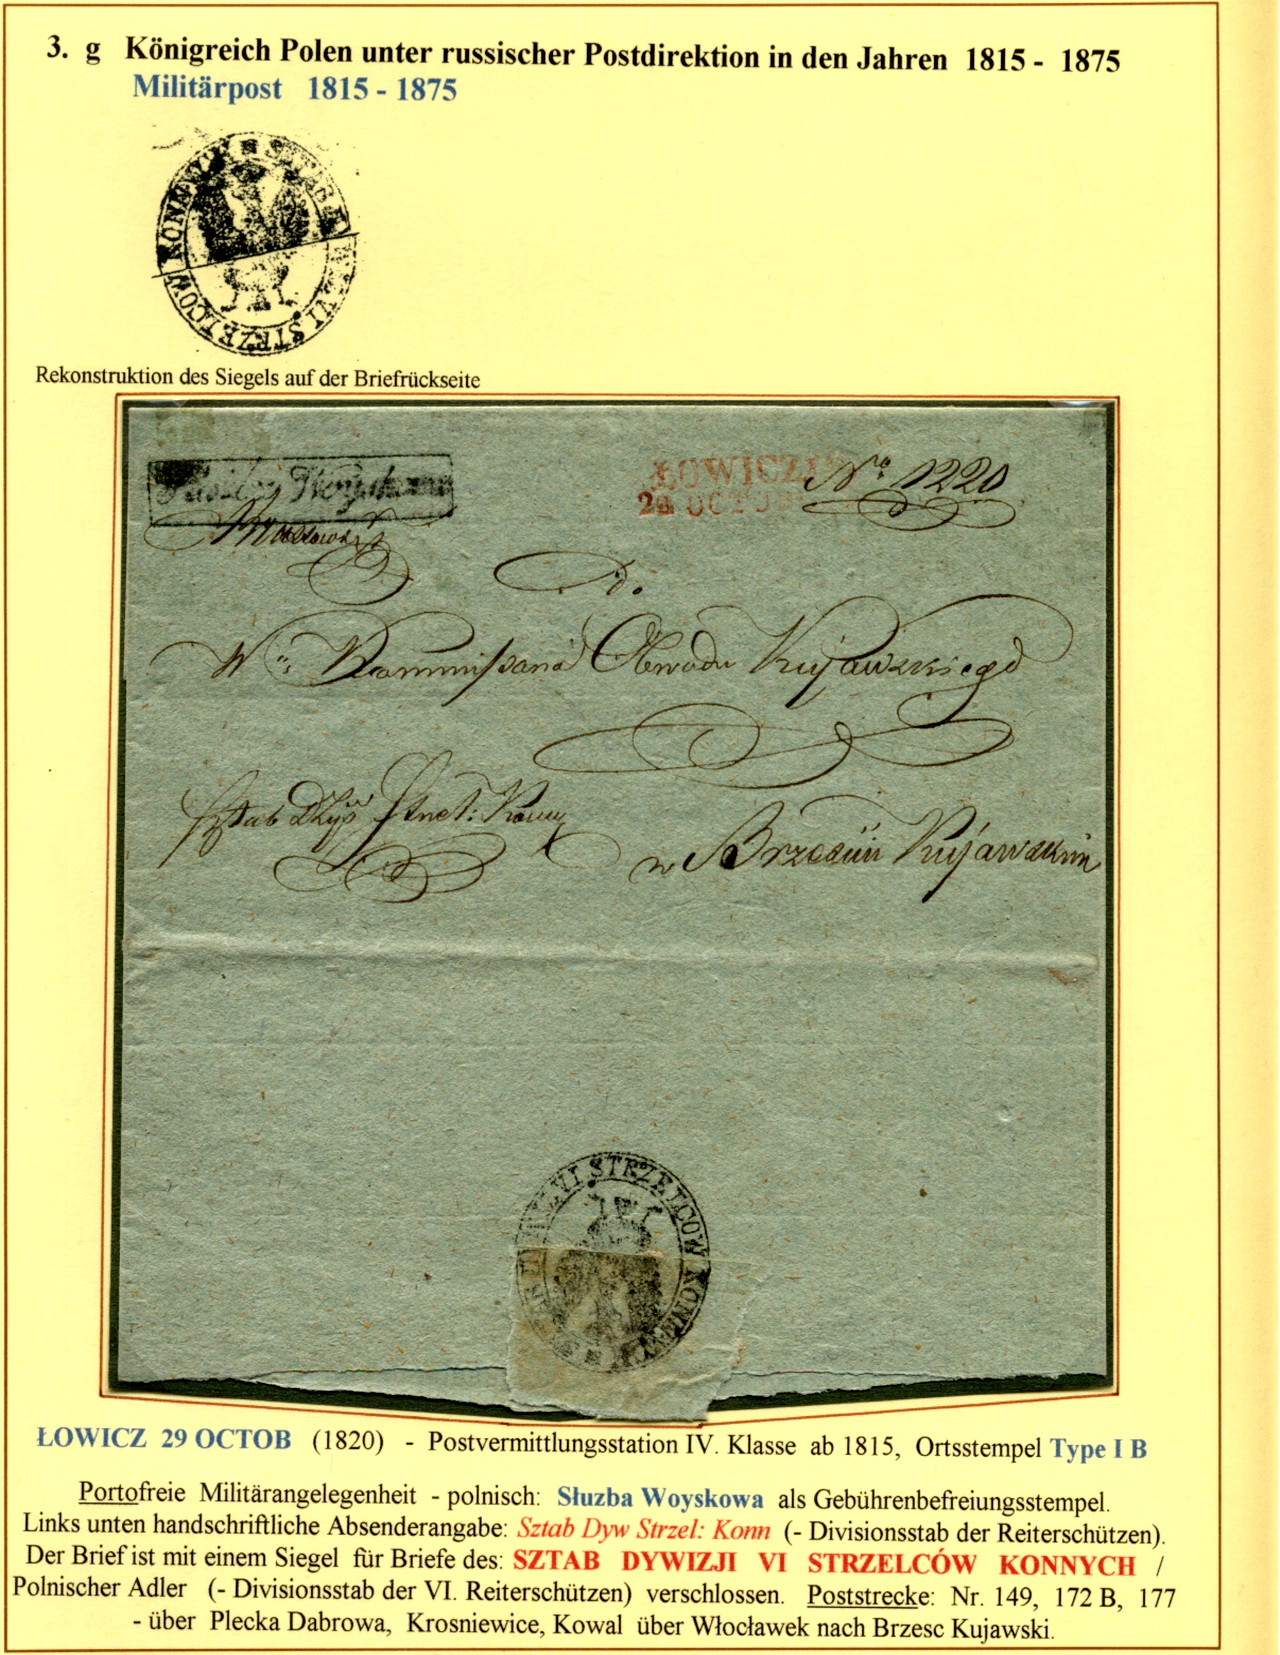 3. g Königreich Polen unter russischer Postdirektion in den Jahren 1815 - 1875
Militärpost 1815 - 1875
SZTAB VI STRZELCOW KONNY
Rekonstruktion des Siegels auf der Briefrückseite
Służba Woyskowa
ŁOWICZ
29 OCTOB
No 1220
Do.
W Kommissarza Obwodu Kujawskiego
Sztab Strzel: Konny
w Brzesciu Kujawskim
VI STRZELCOW KONNY
ŁOWICZ 29 OCTOB (1820) - Postvermittlungsstation IV. Klasse ab 1815, Ortsstempel Type I B
Portofreie Militärangelegenheit - polnisch: Słuzba Woyskowa als Gebührenbefreiungsstempel.
Links unten handschriftliche Absenderangabe: Sztab Dyw Strzel: Konn (- Divisionsstab der Reiterschützen).
Der Brief ist mit einem Siegel für Briefe des: SZTAB DYWIZJI VI STRZELCÓW KONNYCH /
Polnischer Adler (- Divisionsstab der VI. Reiterschützen) verschlossen. Poststrecke: Nr. 149, 172 B, 177
- über Plecka Dabrowa, Krosniewice, Kowal über Włocławek nach Brzesc Kujawski.